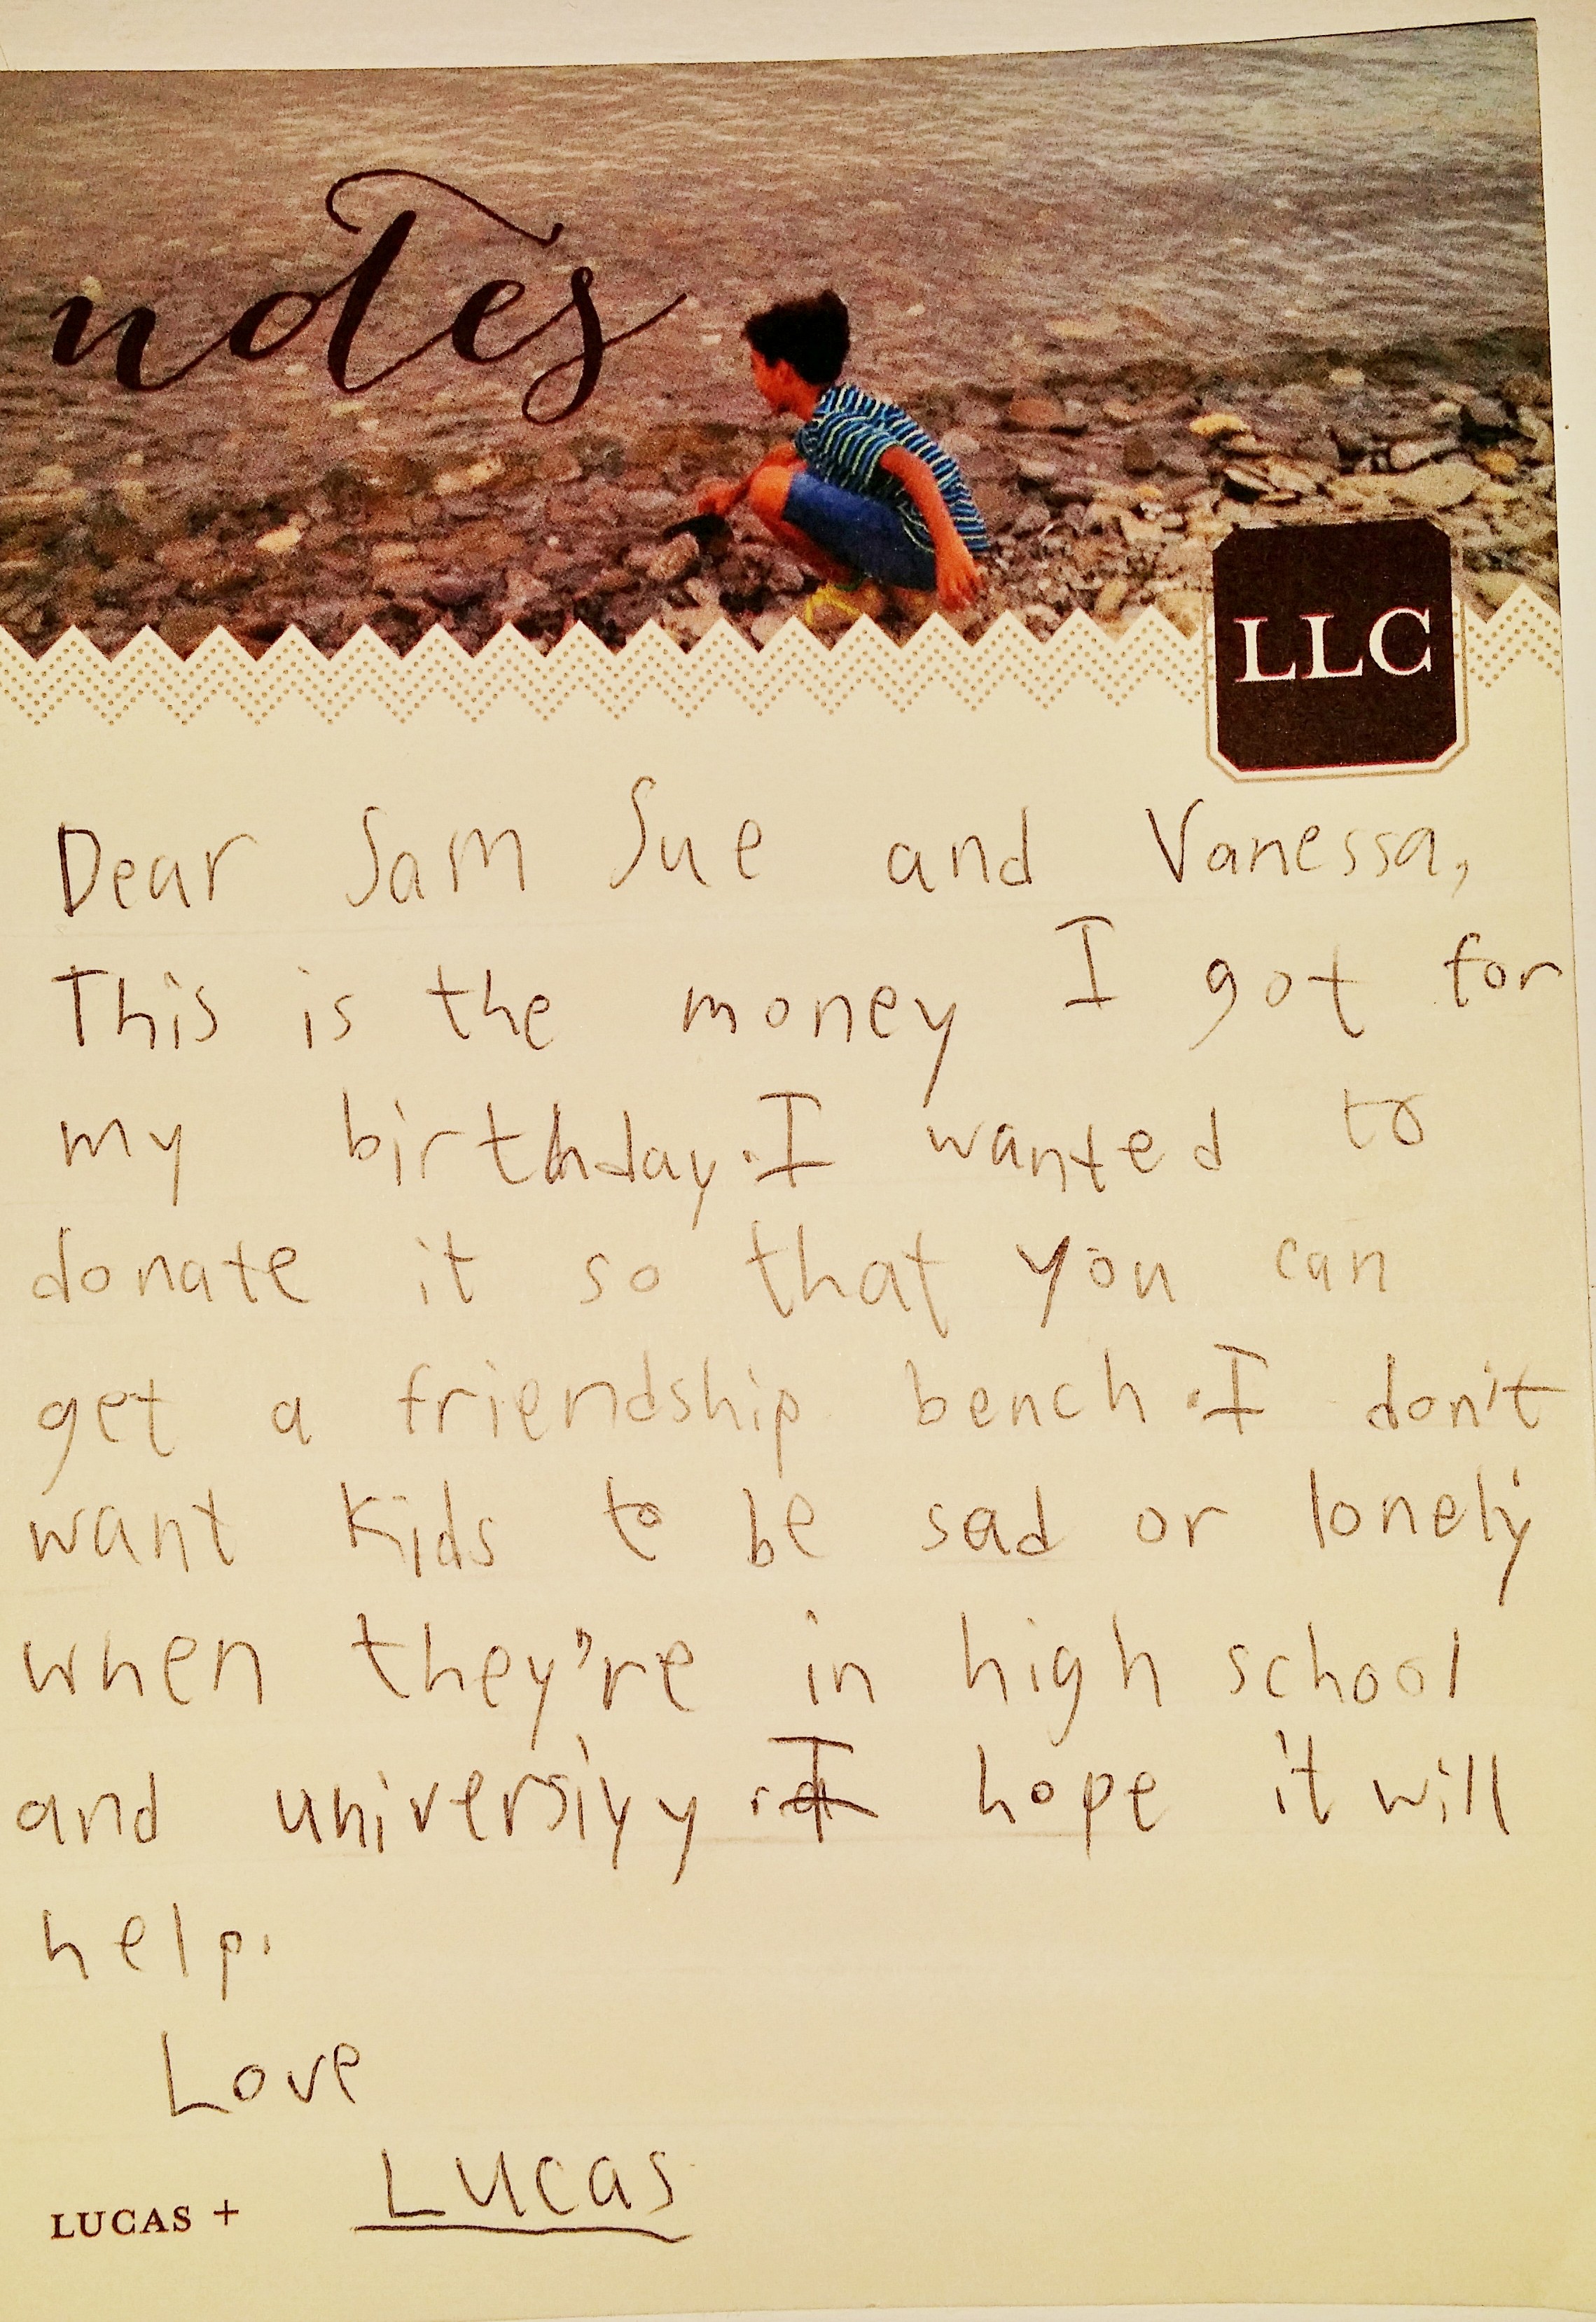 notes
LLC
Dear Sam Sue and Vanessa,
This is the money I got for
my birthday. I wanted to
donate it so that you can
get a friendship bench. I don't
want kids to be sad or lonely
when they're in high school
and universiyy. I hope it will
help.
Love
Lucas
LUCAS +